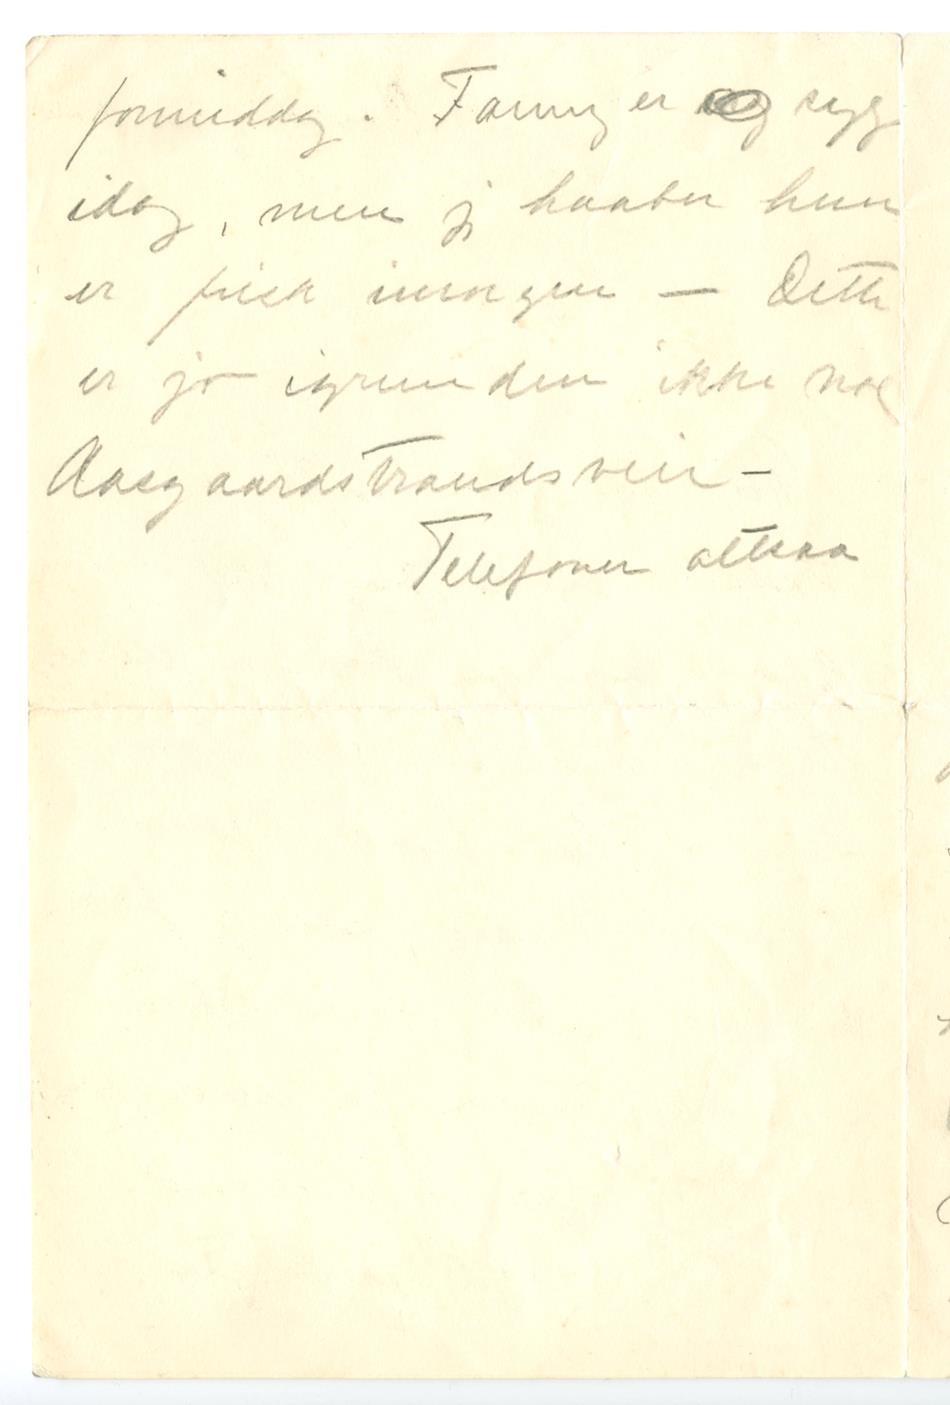 formiddag. Fanny er syg
idag, men jeg haaber hun
er frisk imorgen — Dette
er jo igrunden ikke noe
Aasgaardstrandsveir —
Telefoner altsaa